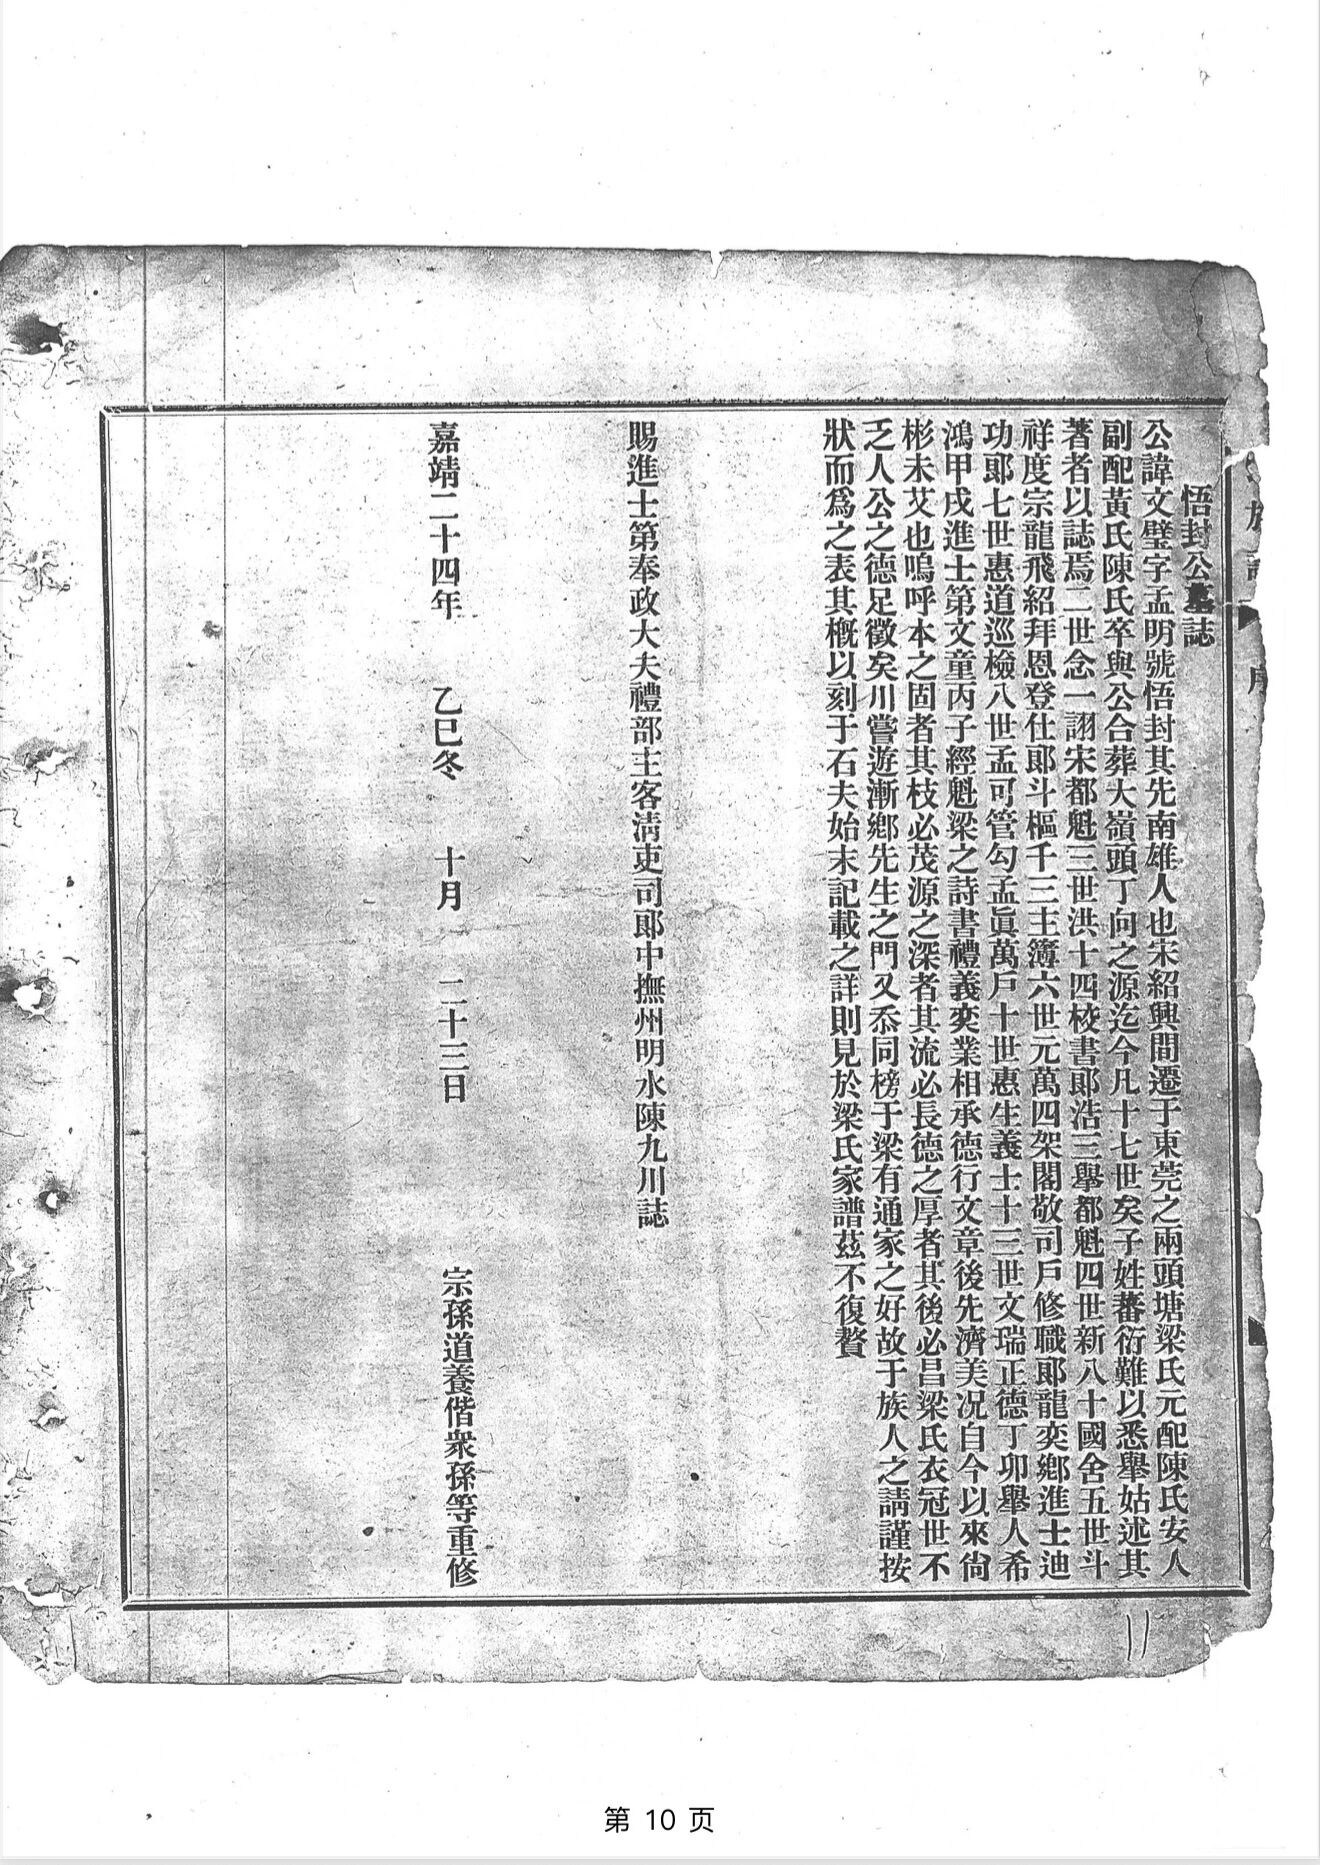 悟封公墓誌
公諱文璧字孟明號悟封其先南雄人也宋紹興間遷于東莞之兩頭塘梁氏元配陳氏安人
副配黃氏陳氏卒與公合葬大嶺頭丁向之源迄今凡十七世矣子姓蕃衍難以悉舉姑述其
著者以誌焉二世念一諏宋都魁三世洪十四校書郞浩三舉都魁四世新八十國舍五世斗
祥度宗龍飛紹拜恩登仕郞斗樞千三主簿六世元萬四架閣敬司戶修職郞龍奕鄕進士迪
功郞七世惠道巡檢八世孟可管勾孟眞萬戶十世惠生義士十三世文瑞正德丁卯舉人希
鴻甲戌進士第文童丙子經魁梁之詩書禮義奕業相承德行文章後先濟美况自今以來尙
彬未艾也嗚呼本之固者其枝必茂源之深者其流必長德之厚者其後必昌梁氏衣冠世不
乏人公之德足徵矣川嘗遊漸鄕先生之門又忝同榜于梁有通家之好故于族人之請謹按
狀而爲之表其槪以刻于石夫始末記載之詳則見於梁氏家譜茲不復贅
賜進士第奉政大夫禮部主客淸吏司郞中撫州明水陳九川誌
嘉靖二十四年 乙巳冬 十月 二十三日 宗孫道養偕衆孫等重修
11
第 10 页